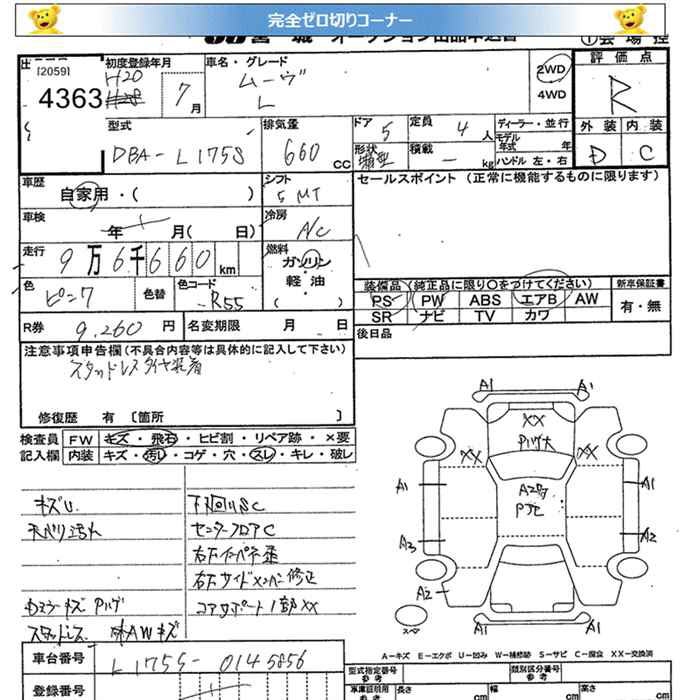 完全ゼロ切りコーナー
[2059]
4363
初度登録年月
H20
7月
車名・グレード
ムーヴ
L
2WD
4WD
評価点
R
外装 内装
D C
型式
DBA-L175S
排気量
660 CC
ドア 5
形状 箱型
定員 4人
積載 - kg
ディーラー・並行
モデル年式 年
ハンドル 左・右
車歴
自家用・( )
シフト
5 MT
セールスポイント (正常に機能するものに限ります)
車検
年 月( 日)
冷房
A/C
走行
9万6千660km
燃料
ガソリン
軽・油
( )
色
ピンク
色替
色コード
R55
装備品 (純正品に限り○をつけてください)
新車保証書
PS PW ABS エアB AW
SR ナビ TV カワ
有・無
R券 9,260 円
名変期限 月 日
後日品
注意事項申告欄 (不具合内容等は具体的に記入して下さい)
スタッドレスタイヤ装着
修復歴 有 〔箇所 〕
検査員
記入欄
FW キズ・飛石・ヒビ割・リペア跡・×要
内装 キズ・汚れ・コゲ・穴・スレ・キレ・破レ
キズU
天ベリ汚れ
スタッドレス AWキズ
下廻りSC
センターフロアC
右下サイドメンバー修正
コアサポート1部XX
A1 A1
XX
XX XX
A1 A1
A3 A2
A2
スペア
A1
A-キズ E-エクボ U-凹み W-補修跡 S-サビ C-腐食 XX-交換済
車台番号 L175S-0145856
登録番号
型式指定番号
参考
類別区分番号
参考
車庫証明用
参考
長さ cm
幅 cm
高さ cm